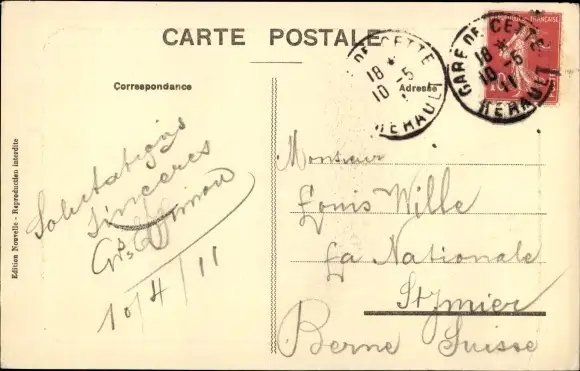 CARTE POSTALE
Correspondance
Adresse
GARE DE CETTE
18 *
10 -5
11
HERAULT
DE CETTE
18 *
10 -5
HERAULT
FRANÇAISE
10
Salutations
sincères
10/4/11
Monsieur
Louis Wille
La Nationale
St Imier
Berne Suisse
Edition Nouvelle - Reproduction interdite